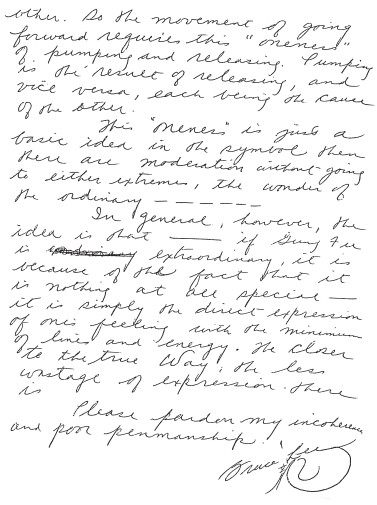 other. So the movement of going
forward requires this "oneness"
of pumping and releasing. Pumping
is the result of releasing, and
vice versa, each being the cause
of the other.
This "oneness" is just a
basic idea in the symbol then
there are moderation without going
to either extremes, the wonder of
the ordinary — — — — — —
In general, however, the
idea is that —— if Gung Fu
is extraordinary, it is
because of the fact that it
is nothing at all special —
it is simply the direct expression
of one's feeling with the minimum
of lines and energy. The closer
to the true Way, the less
wastage of expression there
is
Please pardon my incoherence
and poor penmanship.
Bruce Lee